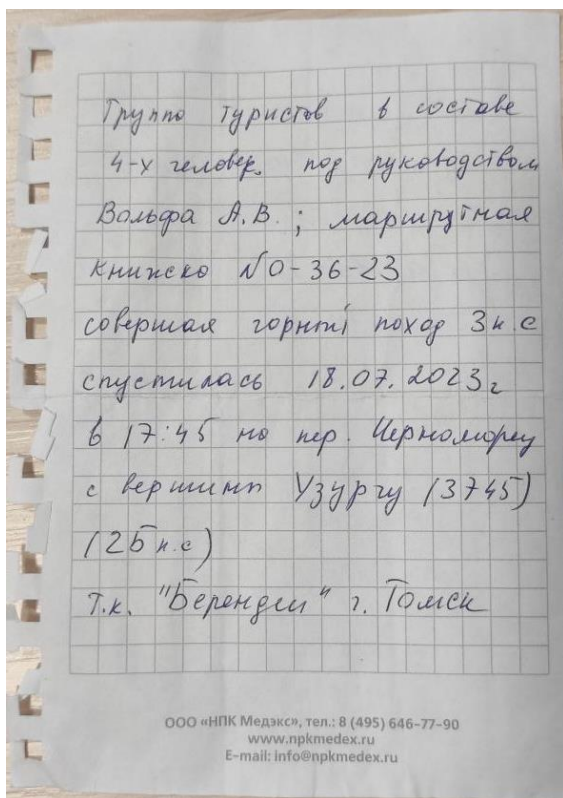 Группа туристов в составе
4-х человек. под руководством
Вольфа А.В.; маршрутная
книжка №0-36-23
совершая горный поход 3 к.с
спустилась 18.07.2023г
в 17:45 на пер. Черноморец
с вершины Узургу (3745)
(2Б к.с)
т.к. "Берендеи" г. Томск
ООО «НПК Медэкс», тел.: 8 (495) 646-77-90
www.npkmedex.ru
E-mail: info@npkmedex.ru